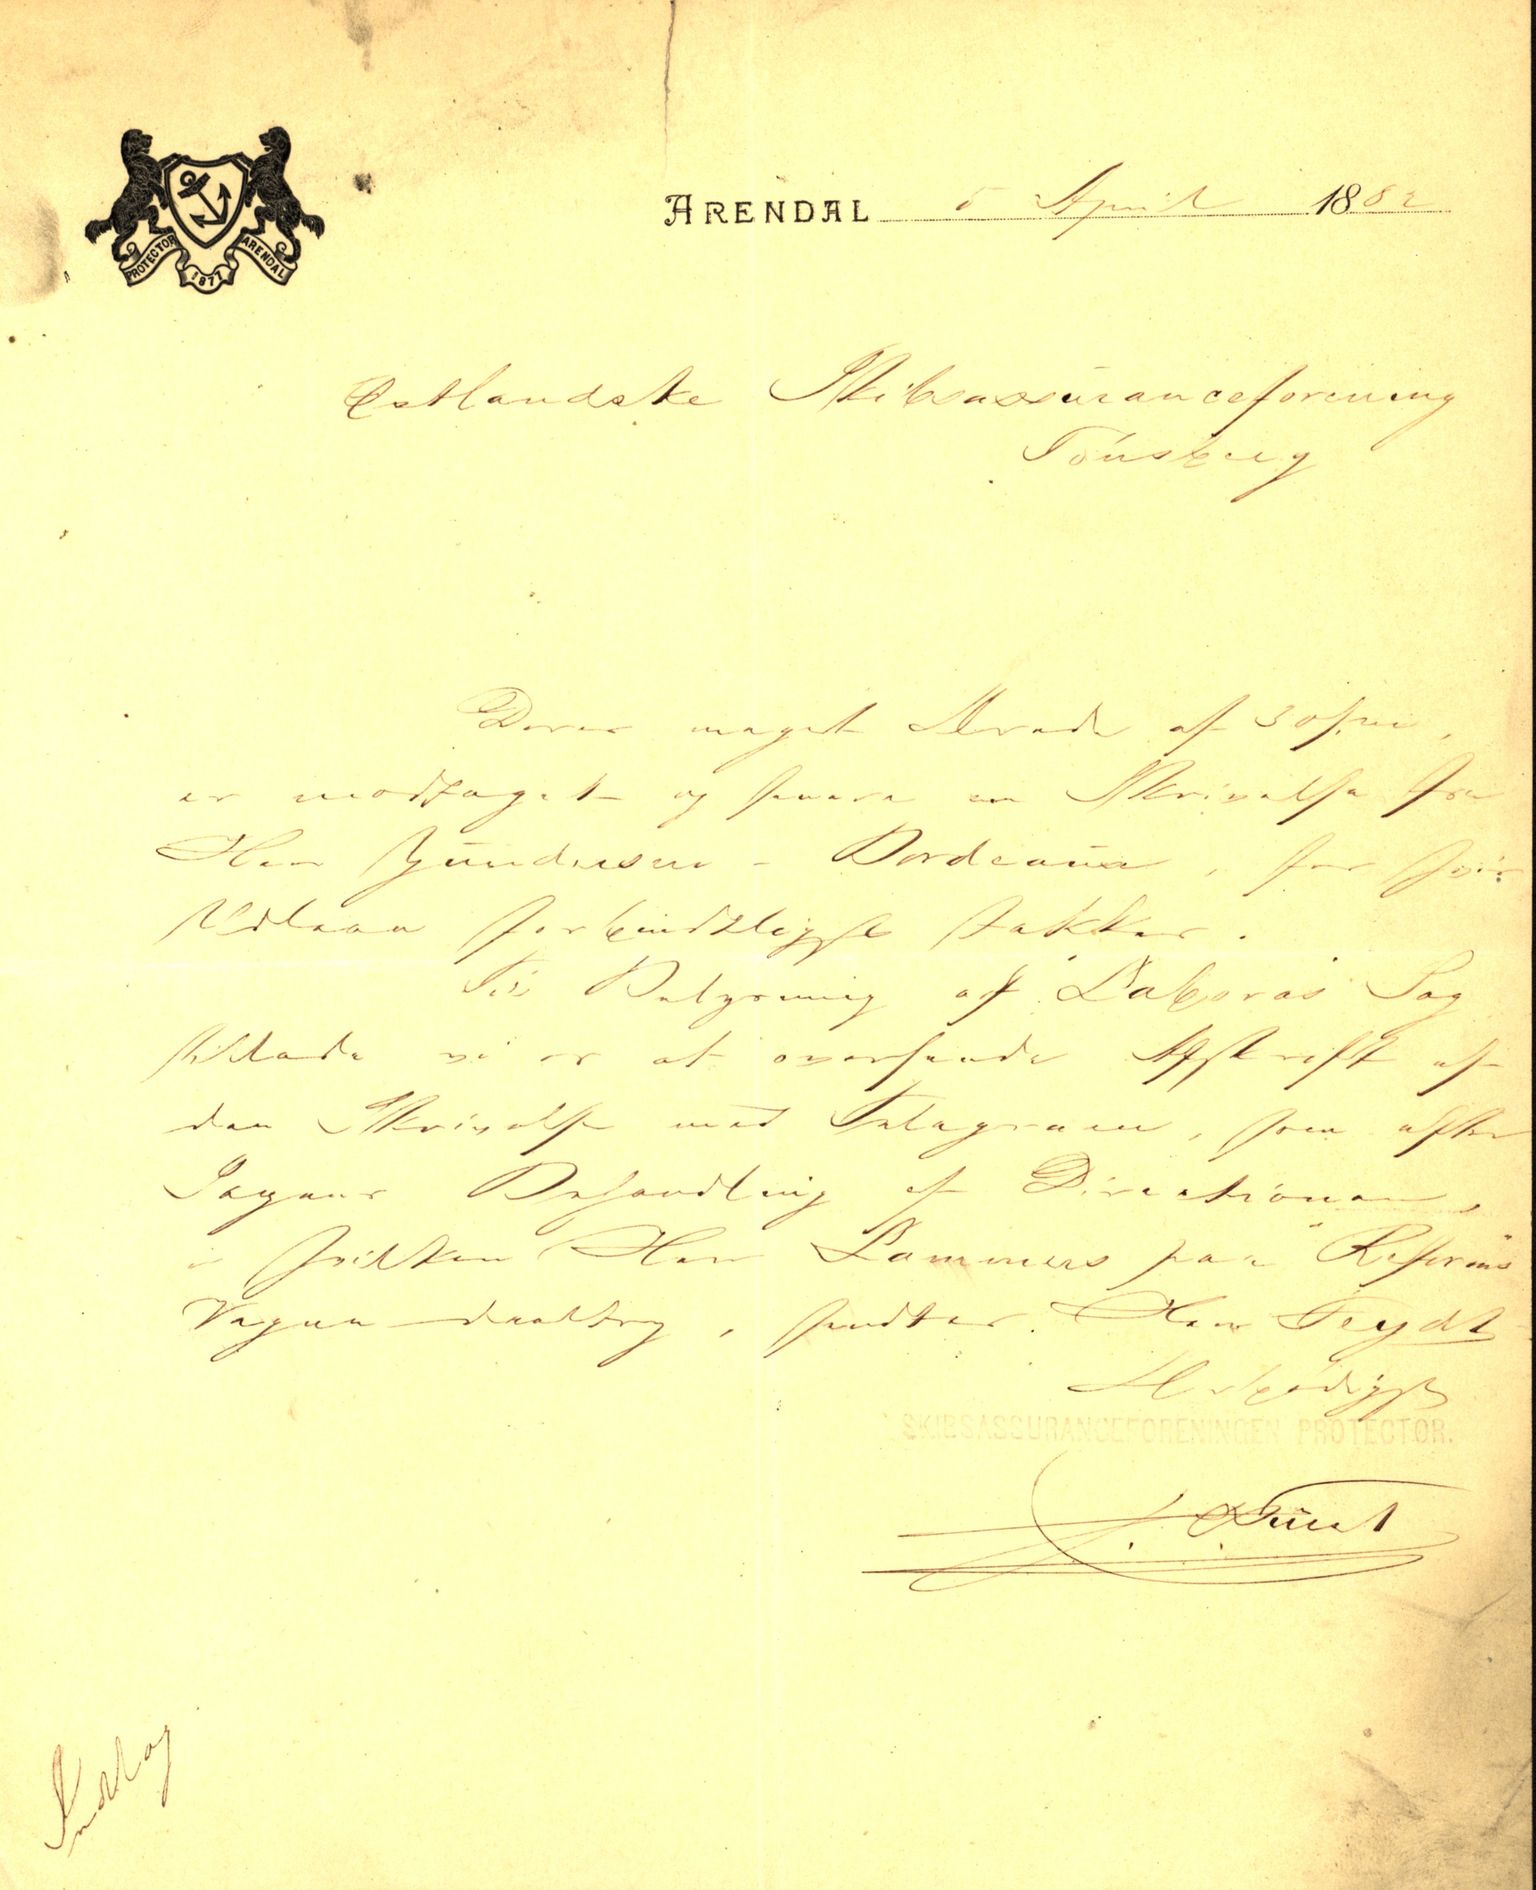 PROTECTOR 1877 ARENDAL
ARENDAL 5 April 1882
Østlandske Skibsassuranceforening
Tönsberg
Deres meget Ærede af 30 f.m.,
er modtaget og senere en Skrivelse fra
Herr Gundersen - Bordeaux, for hvis
Udlaan forbindtligst takkes.
Til Belysning af "Laboras" Sag
tillade vi os at oversende Afskrift af
den Skrivelse med Telegram, som efter
Sagens Behandling af Directionen,
i hvilken Herr Lammers paa "Reforms"
Vegne deeltog, sendtes Herr Feydt
Ærbödigst
SKIBSASSURANCEFORENINGEN PROTECTOR.
Indlag